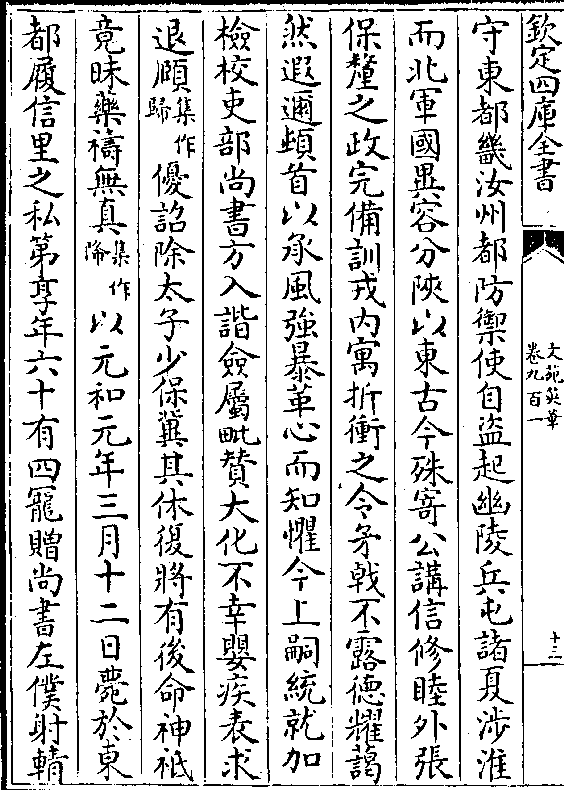 欽定四庫全書
文苑英華
卷九百一
十三
守東都畿汝州都防禦使自盜起幽陵兵屯諸夏渉淮
而北軍國異容分陜以東古今殊寄公講信修睦外張
保釐之政完備訓戎内寓折衝之令矛㦸不露德耀藹
然遐邇頓首以承風強暴革心而知懼今上嗣統就加
檢校吏部尚書方入諧僉屬毗贊大化不幸嬰疾表求
退願集作歸優詔除太子少保冀其休復將有後命神祇
竟昧藥禱無真集作䆮以元和元年三月十二日薨於東
都履信里之私第享年六十有四寵贈尚書左僕射輤